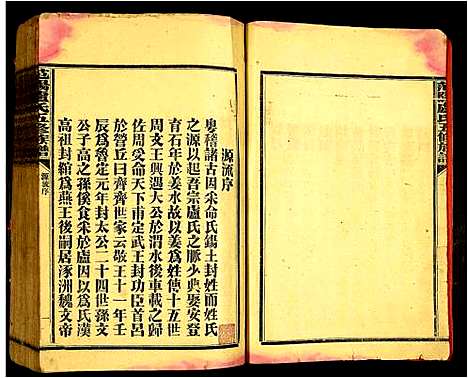 范陽盧氏五修族譜
源流序
粵稽諸古因采命氏錫土封姓而姓氏
之源以起吾宗盧氏之脈少典娶安登
育石年於姜水故以姜爲姓傳十五世
周文王興遇大公於渭水後車載之歸
佐周受命天下甫定武王封功臣首呂
於營丘曰齊齊世家云敬王十一年壬
辰爲改元年封太公二十四世孫文
公子高之孫傒食采於盧因以爲氏漢
高祖封綰爲燕王後嗣居涿洲魏文帝
范陽盧氏五修族譜
源流序